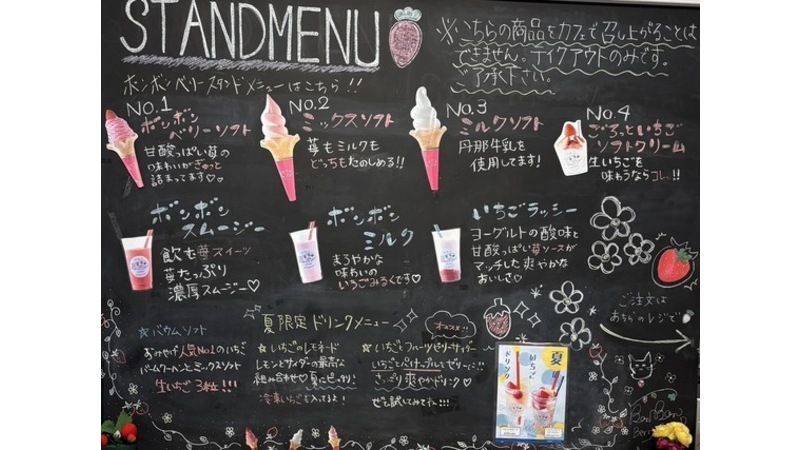 STANDMENU
※こちらの商品をカフェで召し上がることは
できません。テイクアウトのみです。
ご了承下さい。
ボンボンベリースタンドメニューはこちら!!
NO.1
ボンボン
ベリーソフト
甘酸っぱい苺の
味わいがぎゅっと
詰まってます♡
NO.2
ミックスソフト
苺もミルクも
どっちもたのしめる!!
NO.3
ミルクソフト
丹那牛乳を
使用してます!
NO.4
ごろっといちご
ソフトクリーム
生いちごを
味わうならコレ!!
ボンボン
スムージー
飲む苺スイーツ
苺たっぷり
濃厚スムージー♡
ボンボン
ミルク
まろやかな
味わいの
いちごみるくです♡
いちごラッシー
ヨーグルトの酸味と
甘酸っぱい苺ソースが
マッチした爽やかな
おいしさ♡
ご注文は
あちらのレジで
☆バウムソフト
おみやげ人気No.1のいちご
バームクーヘンとミックスソフト
生いちご3粒!!!
夏限定ドリンクメニュー
☆いちごのレモネード
レモンとサイダーの最高な
組み合わせ♡夏にピッタリ
冷凍いちご入ってるよ!
オススメ!!
☆いちごとフルーツゼリーサイダー
いちごとパイナップルでゼリーに!!
さっぱり爽やかドリンク♡
ぜひ試してみてね!!!
夏
いちご
ドリンク